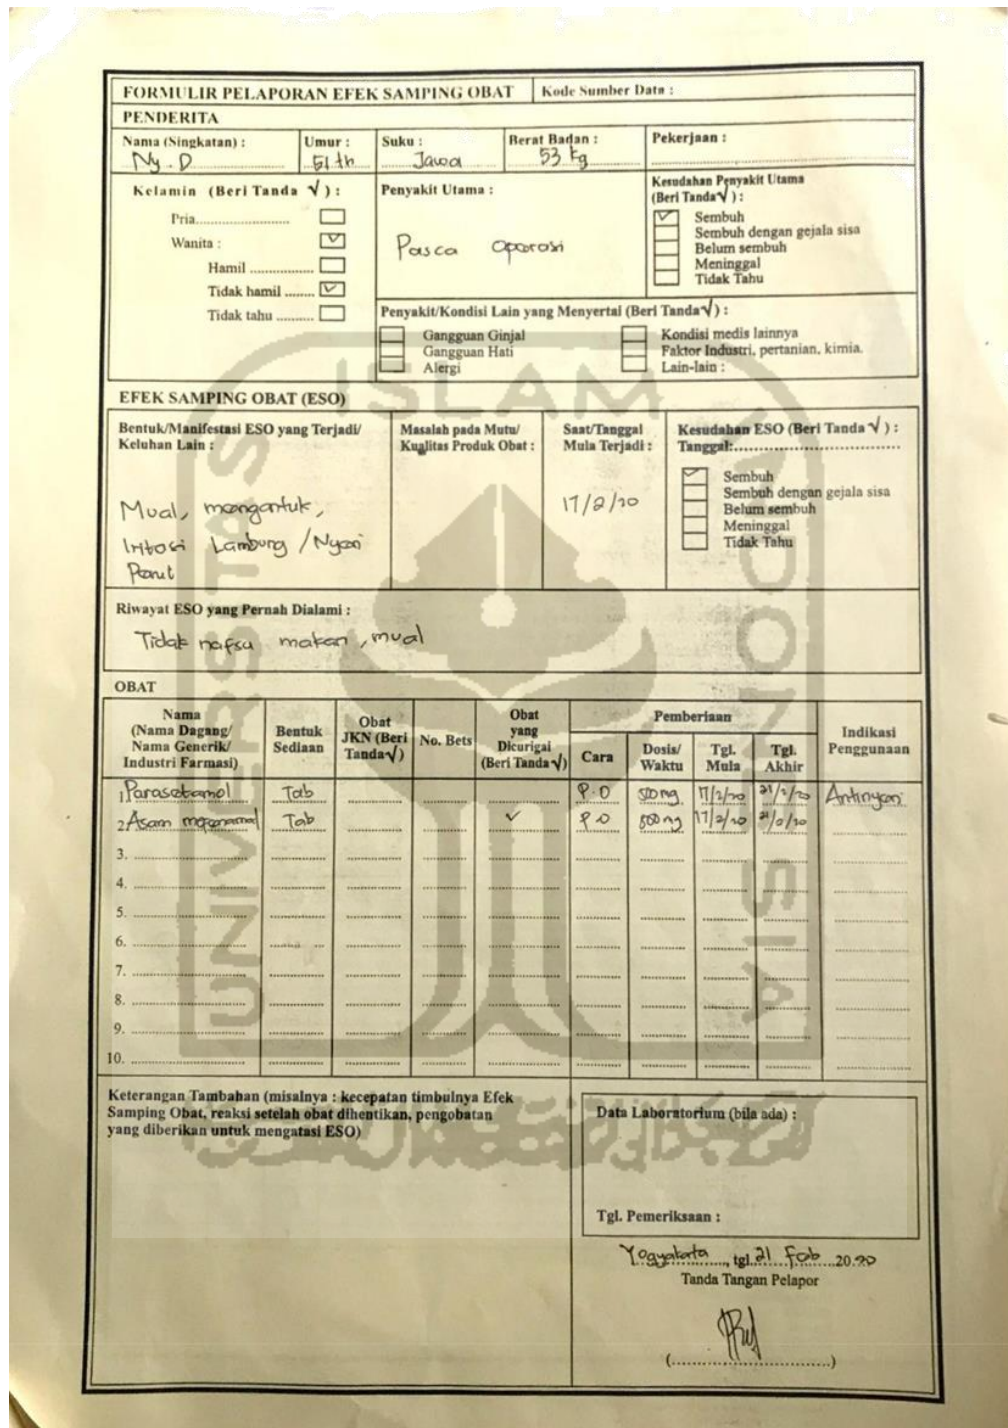 FORMULIR PELAPORAN EFEK SAMPING OBAT Kode Sumber Data :
PENDERITA
Nama (Singkatan) : Umur : Suku : Berat Badan : Pekerjaan :
Ny. D 51 th Jawa 53 kg
Kelamin (Beri Tanda √) :
Pria
Wanita : ✓
Hamil
Tidak hamil ✓
Tidak tahu
Penyakit Utama :
Pasca operasi
Kesudahan Penyakit Utama
(Beri Tanda √) :
✓ Sembuh
Sembuh dengan gejala sisa
Belum sembuh
Meninggal
Tidak Tahu
Penyakit/Kondisi Lain yang Menyertai (Beri Tanda √) :
Gangguan Ginjal
Gangguan Hati
Alergi
Kondisi medis lainnya
Faktor Industri, pertanian, kimia.
Lain-lain :
EFEK SAMPING OBAT (ESO)
Bentuk/Manifestasi ESO yang Terjadi/
Keluhan Lain :
Mual, mengantuk,
Iritasi Lambung / Nyeri
Perut
Masalah pada Mutu/
Kualitas Produk Obat :
Saat/Tanggal
Mula Terjadi :
17/2/20
Kesudahan ESO (Beri Tanda √) :
Tanggal:
✓ Sembuh
Sembuh dengan gejala sisa
Belum sembuh
Meninggal
Tidak Tahu
Riwayat ESO yang Pernah Dialami :
Tidak nafsu makan, mual
OBAT
Nama
(Nama Dagang/
Nama Generik/
Industri Farmasi)
Bentuk
Sediaan
Obat
JKN (Beri
Tanda √)
No. Bets
Obat
yang
Dicurigai
(Beri Tanda √)
Pemberian
Cara
Dosis/
Waktu
Tgl.
Mula
Tgl.
Akhir
Indikasi
Penggunaan
1 Parasetamol Tab P.O 500 mg 17/2/20 21/2/20 Antinyeri
2 Asam mefenamat Tab ✓ P.O 500 mg 17/2/20 21/2/20
3.
4.
5.
6.
7.
8.
9.
10.
Keterangan Tambahan (misalnya : kecepatan timbulnya Efek
Samping Obat, reaksi setelah obat dihentikan, pengobatan
yang diberikan untuk mengatasi ESO)
Data Laboratorium (bila ada) :
Tgl. Pemeriksaan :
Yogyakarta, tgl. 21 Feb 20.20
Tanda Tangan Pelapor
(..............................)
UNIVERSITAS ISLAM INDONESIA